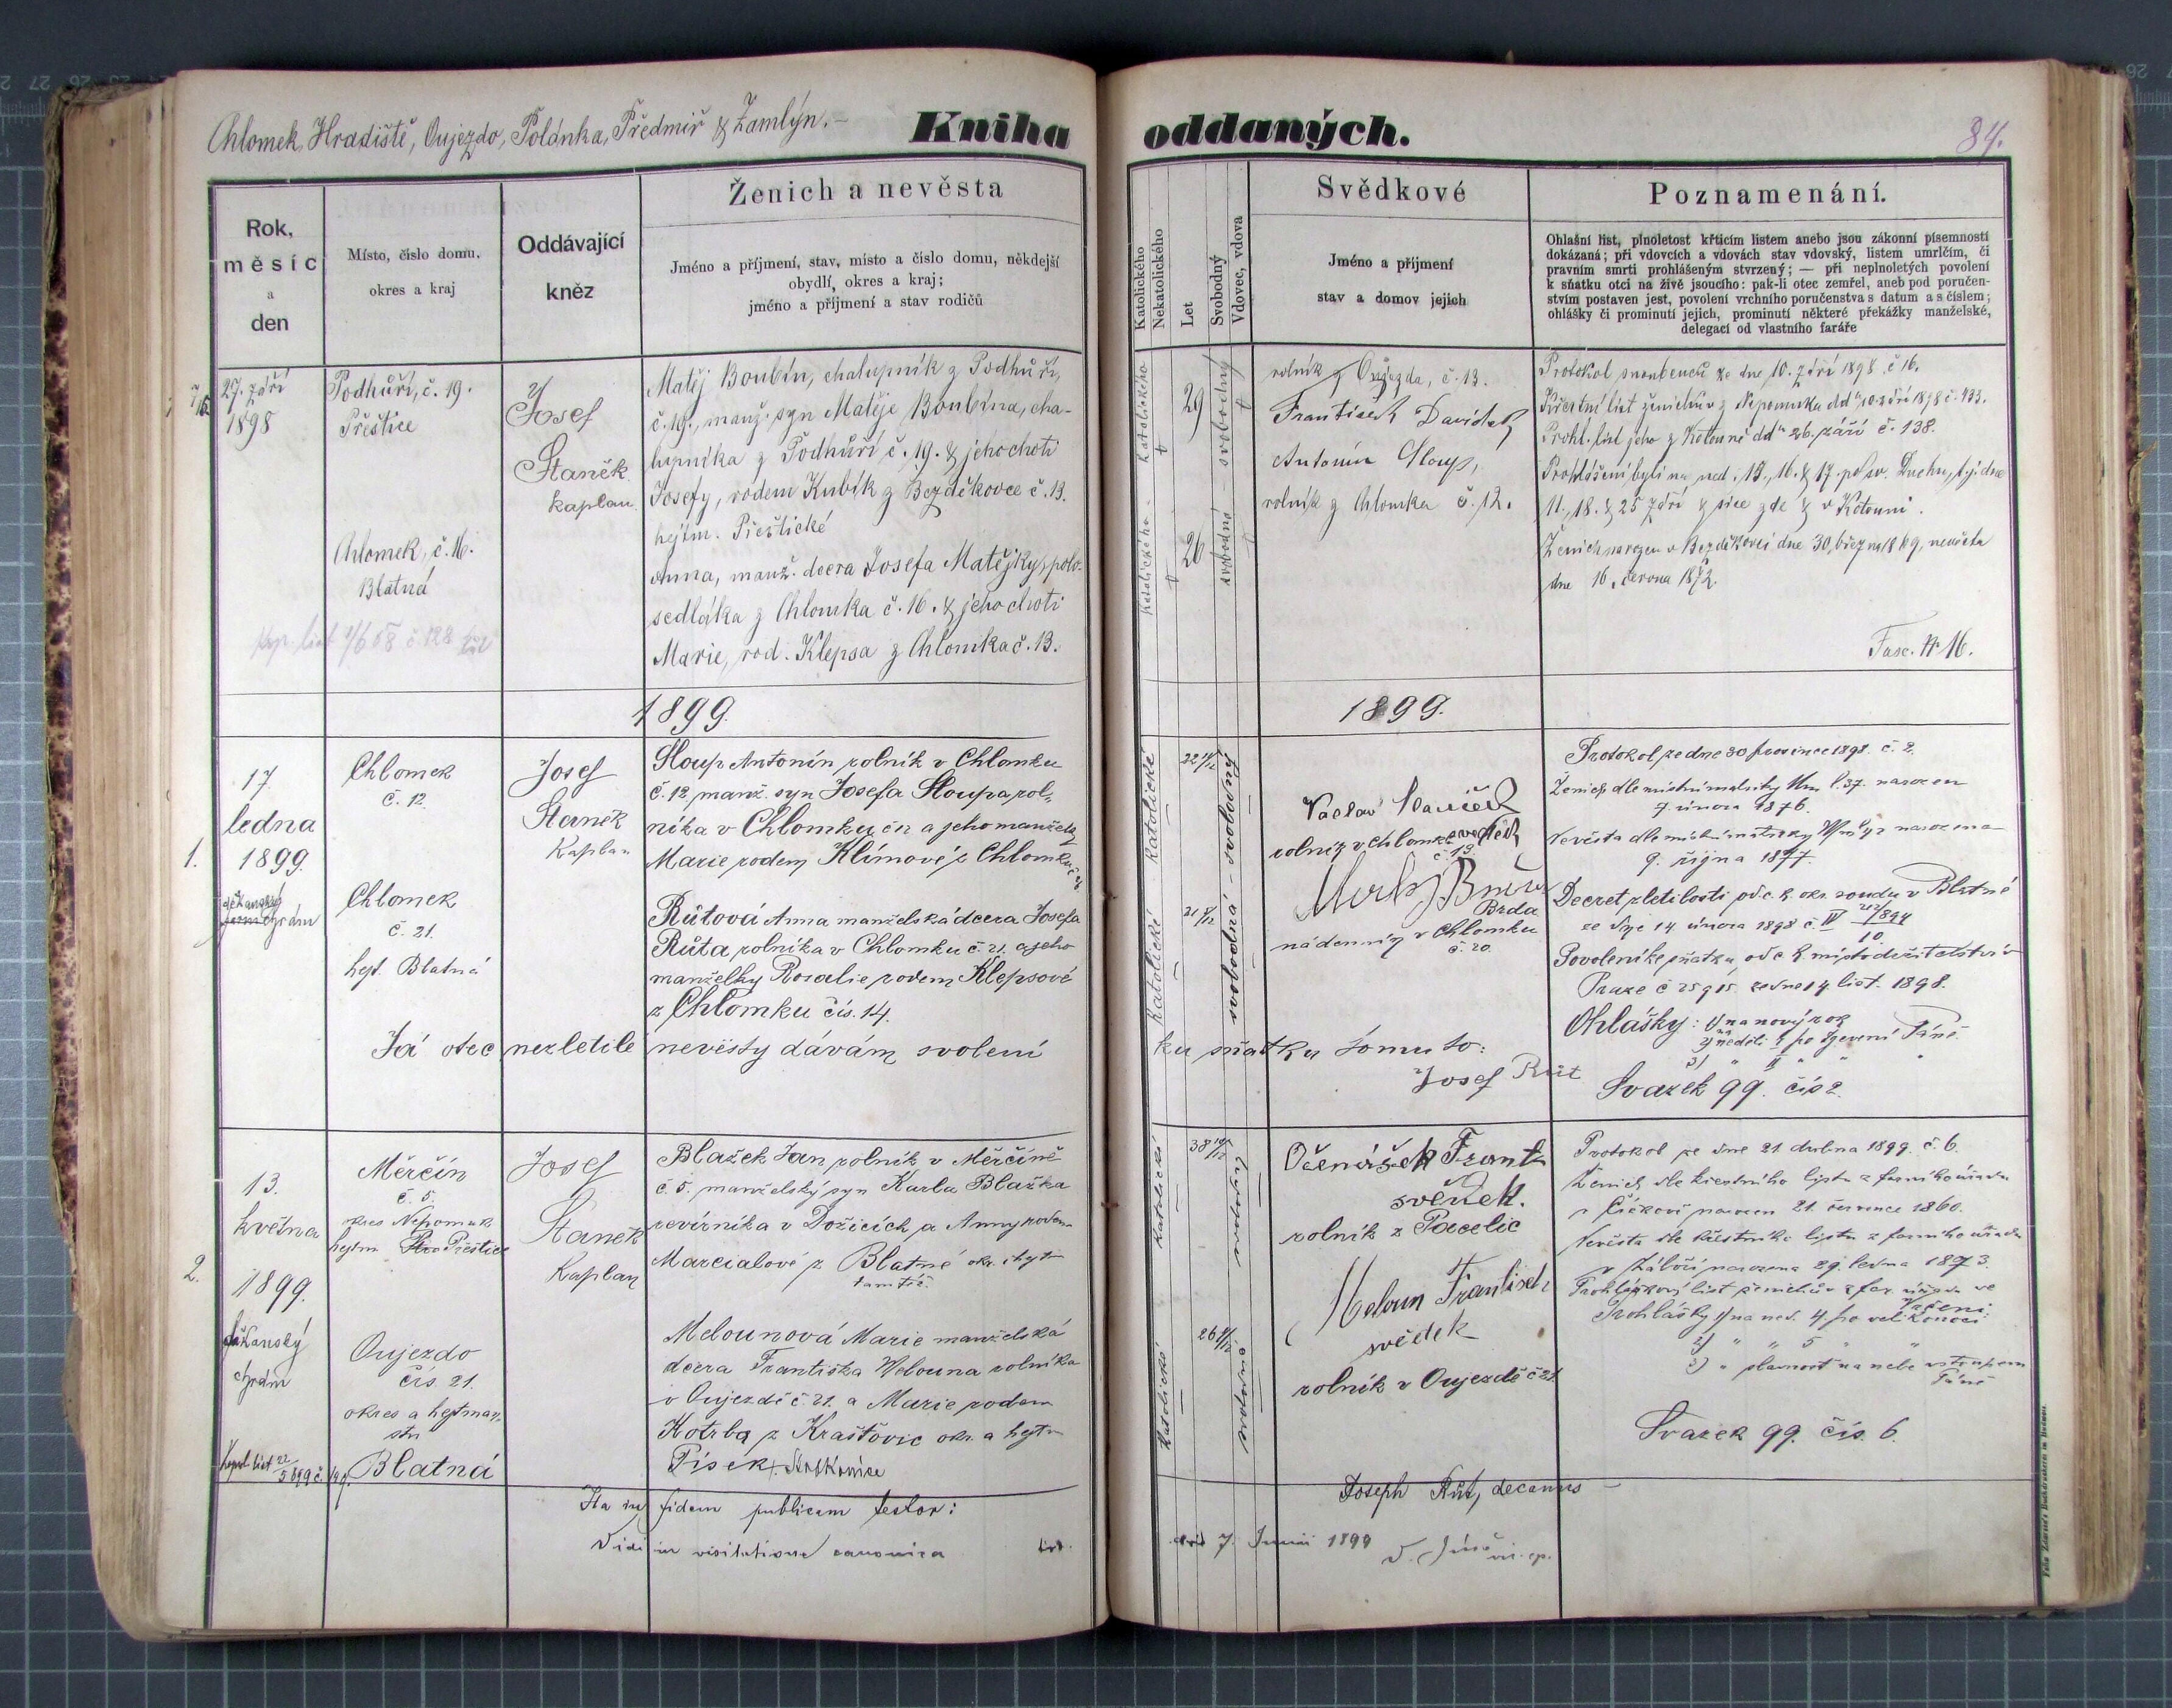 Chlomek, Hradiště, Oujezdo, Polánka, Předmiř & Zamlýn.–
Kniha oddaných.
84.
Rok, měsíc a den
Místo, číslo domu, okres a kraj
Oddávající kněz
Ženich a nevěsta
Jméno a příjmení, stav, místo a číslo domu, někdejší
obydlí, okres a kraj;
jméno a příjmení a stav rodičů
Katolického
Nekatolického
Let
Svobodný
Vdovec, vdova
Svědkové
Jméno a příjmení
stav a domov jejich
Poznamenání.
Ohlašní list, plnoletost křticím listem anebo jsou zákonní písemností
dokázaná; při vdovcích a vdovách stav vdovský, listem umrlčím, či
pravním smrti prohlášeným stvrzený; — při neplnoletých povolení
k sňatku otci na živě jsoucího: pak-li otec zemřel, aneb pod poručen-
stvím postaven jest, povolení vrchního poručenstva s datum a s číslem;
ohlášky či prominutí jejich, prominutí některé překážky manželské,
delegací od vlastního faráře
27. září
1898
Podhůří, č. 19.
Přeštice
Chlomek, č. 16.
Blatná
Josef
Staněk
kaplan
Matěj Boubín, chalupník z Podhůří,
č. 19., manž. syn Matěje Boubína, cha-
lupníka z Podhůří č. 19. & jeho choti
Josefy, rodem Kubík z Bezděkovce č. 13.
hejtm. Přeštické
Anna, manž. dcera Josefa Matějky, polo-
sedláka z Chlomka č. 16. & jeho choti
Marie, rod. Klepsa z Chlomka č. 13.
katolického
katolického
29
26
svobodný
svobodná
rolník z Oujezda, č. 13.
František Davídek
Antonín Sloup,
rolník z Chlomka č. 12.
Protokol snoubenců ze dne 10. září 1898 č. 16.
Křestní list ženichův z Nepomuka dd° 10. září 1898 č. 433.
Prohl. list jeho z Kotouně dd° 26. září č. 138.
Prohlášeni byli na ned. 15., 16. & 17. po sv. Duchu, t. j. dne
11., 18. & 25 září & sice zde & v Kotouni.
Ženich narozen v Bezděkovci dne 30. března 1869, nevěsta
dne 16. června 1872.
Fasc. № 16.
1899.
1899.
1.
17.
ledna
1899.
děkanský
chrám
Chlomek
č. 12
Chlomek
č. 21.
hejt. Blatná
Josef
Staněk
Kaplan
Sloup Antonín rolník v Chlomku
č. 12 manž. syn Josefa Sloupa, rol-
níka v Chlomku č. 12 a jeho manželky
Marie rodem Klímové z Chlomku
Růtová Anna manželská dcera Josefa
Růta rolníka v Chlomku č. 21. a jeho
manželky Rosalie rodem Klepsové
z Chlomku čís. 14.
Já otec nezletilé nevěsty dávám svolení
ku sňatku tomuto:
Josef Růt
katolické
katolické
svobodná - svobodný
Václav
rolník v Chlomku svědek
č. 13.
Brda
nádenník v Chlomku
č. 20.
Protokol ze dne 30 prosince 1898. č. 2.
Ženich dle místní matriky narozen
7. února 1876.
Nevěsta dle místní matriky narozena
9. října 1877.
Decret zletilosti od c. k. okr. soudu v Blatné
ze dne 14 února 1898 č. IV
Povolení ke sňatku od c. k. místodržitelství v
Praze ze dne 14 list. 1898.
Ohlášky: 1) na nový rok
2) neděli I po Zjevení Páně
3) " II " "
Svazek 99. čís 2.
2.
13.
května
1899.
děkanský
chrám
Měrčín
č. 5.
okres Nepomuk
hejtm Přeštice
Oujezdo
čís. 21.
okres a hejtman-
ství
Blatná
Josef
Staněk
Kaplan
Blažek Jan rolník v Měrčíně
č. 5. manželský syn Karla Blažka
revírníka v Dožicích a Anny rodem
Marcialové z Blatné okr. i hejt
tamtéž.
Melounová Marie manželská
dcera Františka Melouna rolníka
v Oujezdě č. 21. a Marie rodem
Kotrba z Kraštovic okr. a hejt
Písek Strakonice
katolické
katolické
svobodný
svobodná
Očenášek Frant
svědek.
rolník z Pacelic
Meloun František
svědek
rolník v Oujezdě č 21.
Protokol ze dne 21. dubna 1899. č. 6.
Ženich dle křestního listu z farního úřadu
narozen 21. července 1860.
Nevěsta dle křestního listu z farního úřadu
v Záboří narozena 29. ledna 1873.
Prohláškový list ženichův z far. úřadu ve
Prohlášky 1) na ned. 4 po velikonoci:
2) " " 5 " "
3) " slavnost na nebe vstoupení
Páně
Svazek 99. čís. 6.
Ita in fidem publicam testor:
Joseph Růt, decanus
Vidi in visitatione canonica
7. Junii 1899